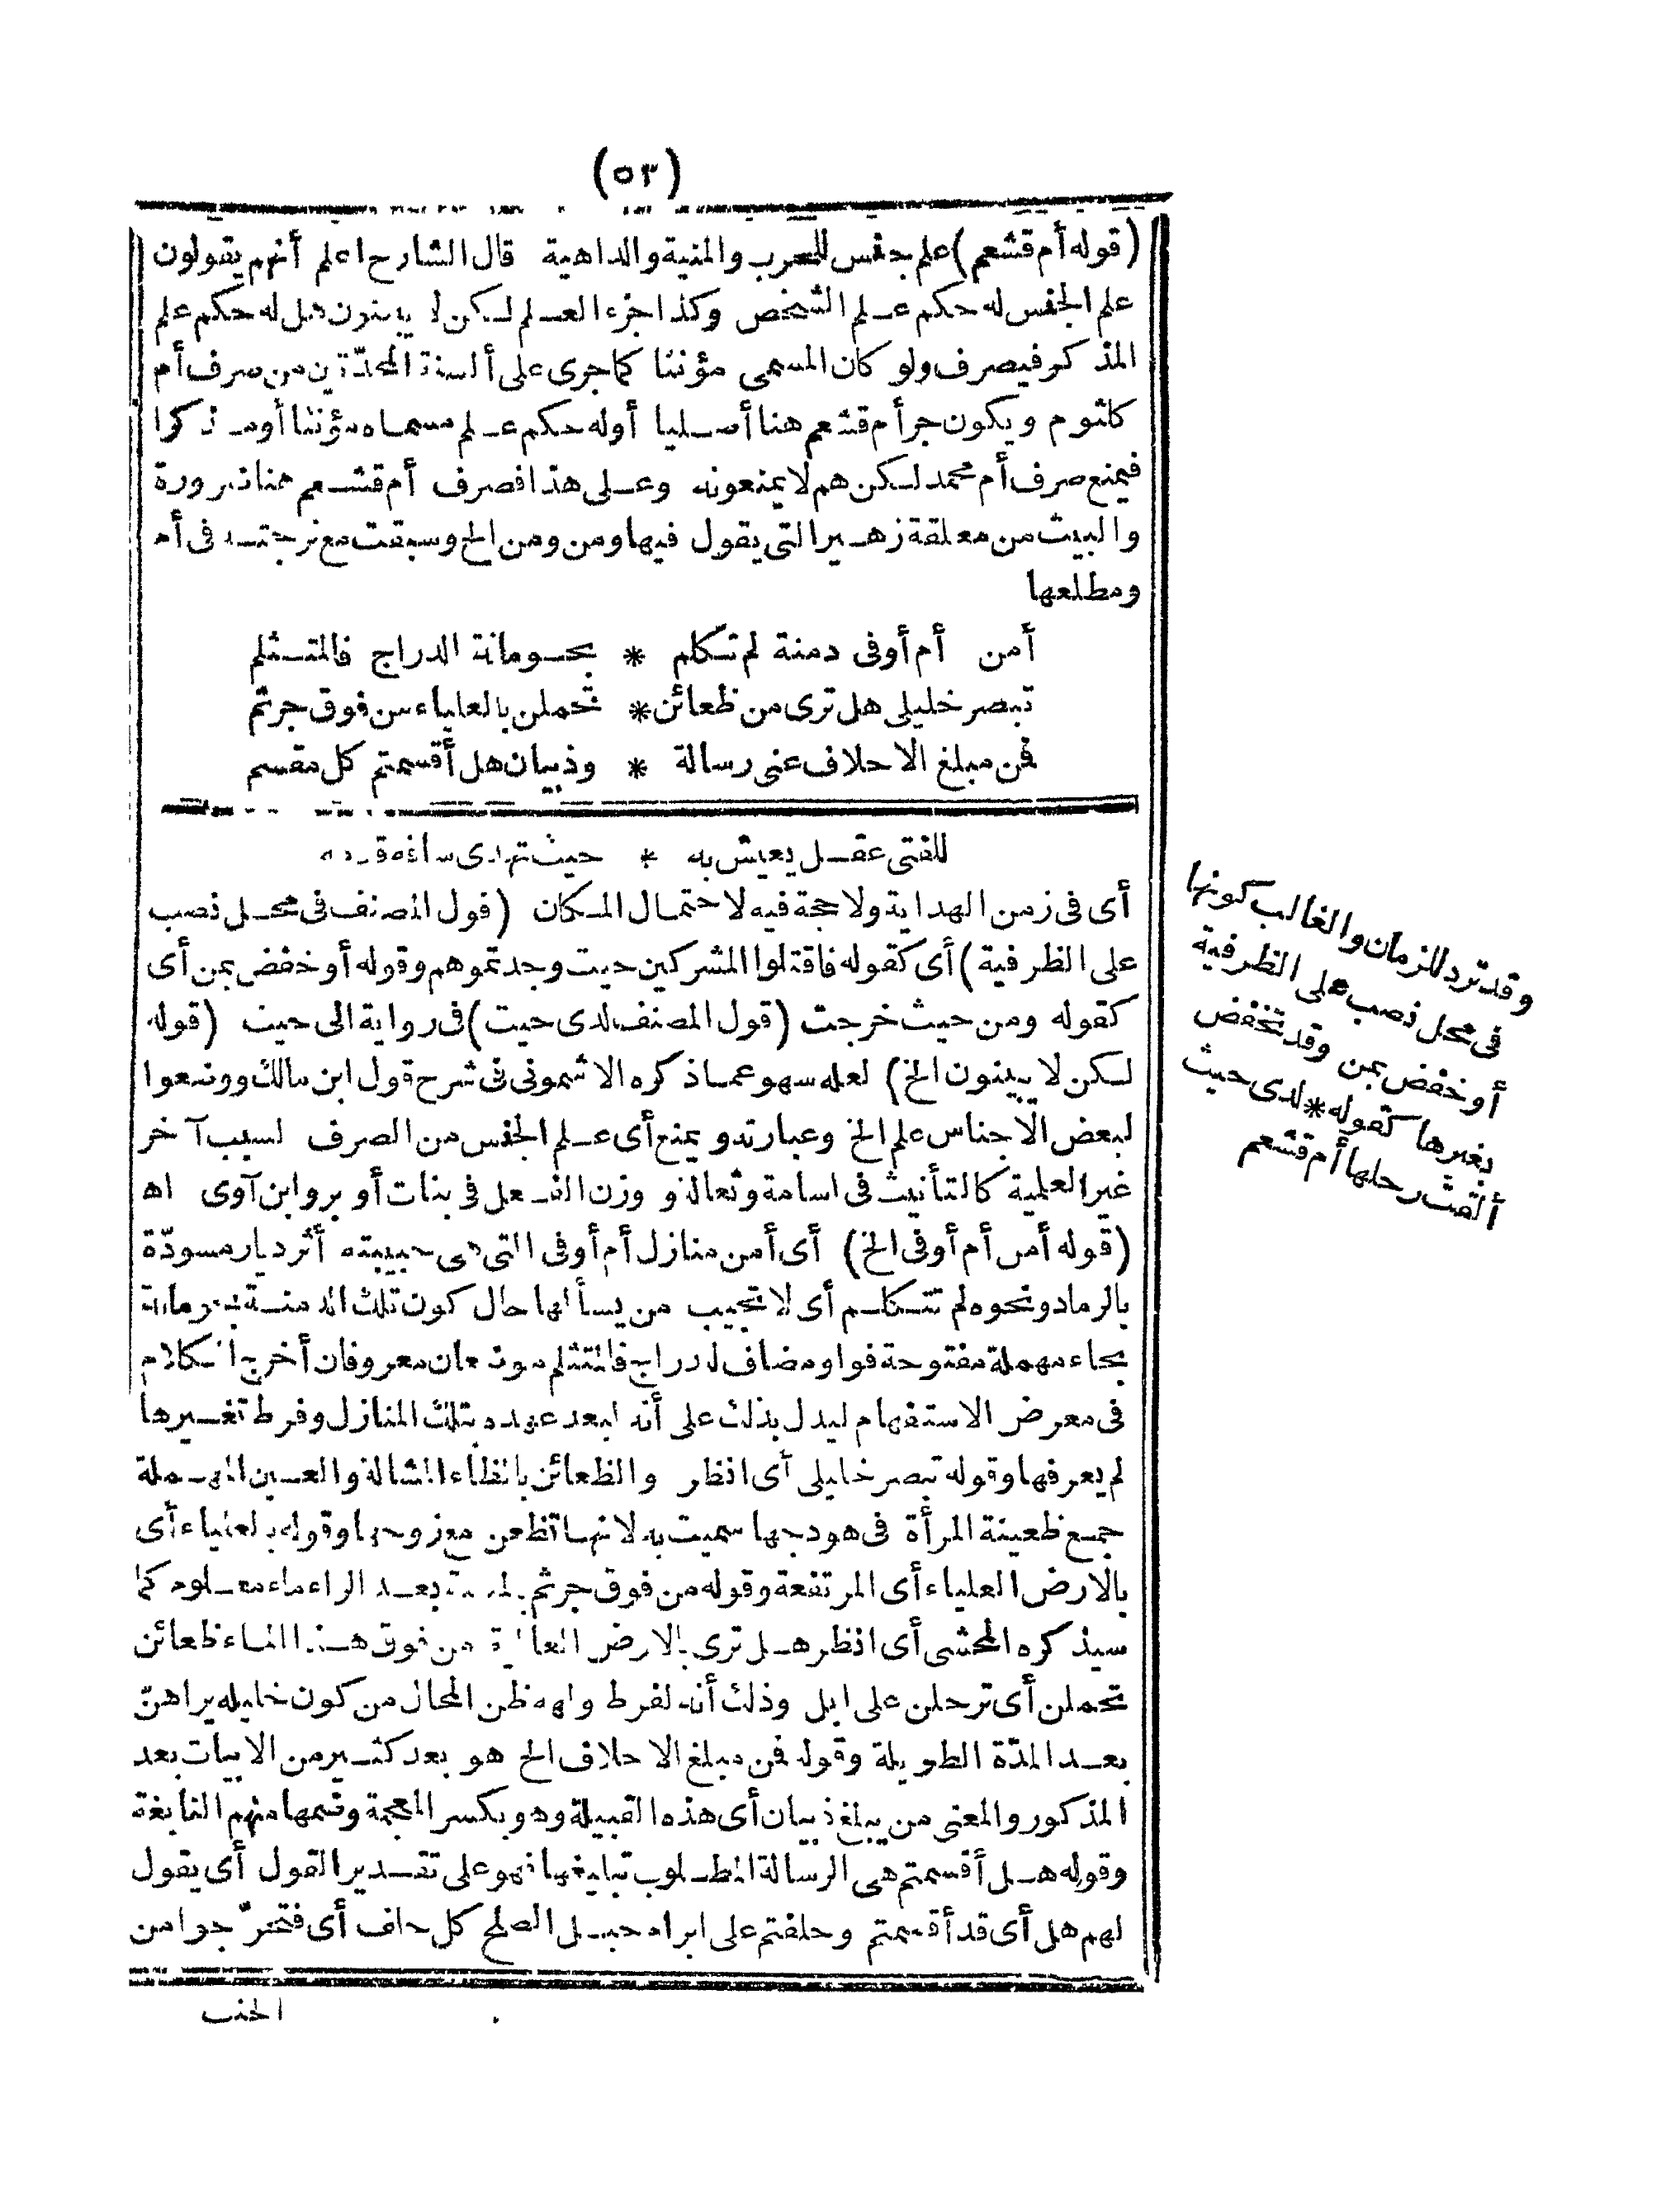 (٥٣)
(قوله أم قشعم) علم جنس للحرب والمنية والداهية قال الشارح اعلم أنهم يقولون
علم الجنس له حكم علم الشخص وكذا جزء العلم لكن لا يبينون هل له حكم علم
المذكر فيصرف ولو كان المسمى مؤنثا كما جرى على ألسنة المحدّثين من صرف أم
كلثوم ويكون جر أم قشعم هنا أصليا أوله حكم علم مسماه مؤنثا أو مذكرا
فيمنع صرف أم محمد لكن هم لا يمنعونه وعلى هذا فصرف أم قشعم هنا ضرورة
والبيت من معلقة زهير التى يقول فيها ومن ومن الخ وسبقت مع ترجمته فى أم
ومطلعها
أمن أم أوفى دمنة لم تكلم * بحومانة الدراج فالمتثلم
تبصر خليلى هل ترى من ظعائن * تحملن بالعلياء من فوق جرثم
فمن مبلغ الاحلاف عنى رسالة * وذبيان هل أقسمتم كل مقسم
للفتى عقل يعيش به * حيث تهدى ساقه قدمه
أى فى زمن الهداية ولا حجة فيه لاحتمال المكان (قول المصنف فى محل نصب
على الظرفية) أى كقوله فاقتلوا المشركين حيث وجدتموهم وقوله أو خفض بمن أى
كقوله ومن حيث خرجت (قول المصنف لدى حيث) فى رواية الى حيث (قوله
لكن لا يبينون الخ) لعله سهو عما ذكره الاشمونى فى شرح قول ابن مالك ووضعوا
لبعض الاجناس علم الخ وعبارته ويمنع أى علم الجنس من الصرف لسبب آخر
غير العلمية كالتأنيث فى اسامة وثعالة ووزن الفعل فى بنات أوبر وابن آوى اه
(قوله أمن أم أوفى الخ) أى أمن منازل أم أوفى التى هى حبيبته أثر ديار مسودّة
بالرماد ونحوه لم تتكلم أى لا تجيب من يسألها حال كون تلك الدمنة بحومانة
بحاء مهملة مفتوحة فواو مضاف لدراج فالمتثلم موضعان معروفان أخرج الكلام
فى معرض الاستفهام ليدل بذلك على أنه لبعد عهده بتلك المنازل وفرط تغيرها
لم يعرفها وقوله تبصر خليلى أى انظر والظعائن بالظاء المشالة والعين المهملة
جمع ظعينة المرأة فى هودجها سميت به لانها تظعن مع زوجها وقوله بالعلياء أى
بالارض العلياء أى المرتفعة وقوله من فوق جرثم بعد الراء ماء معلوم كما
سيذكره المحشى أى انظر هل ترى بالارض العالية من فوق هذا الماء ظعائن
تحملن أى ترحلن على ابل وذلك أنه لفرط ولهه ظن المحال من كون خليله يراهنّ
بعد المدّة الطويلة وقوله فمن مبلغ الاحلاف الخ هو بعد كثير من الابيات بعد
المذكور والمعنى من يبلغ ذبيان أى هذه القبيلة وهو بكسر المعجمة وضمها منهم النابغة
وقوله هل أقسمتم هى الرسالة المطلوب تبليغها فهو على تقدير القول أى يقول
لهم هل أى قد أقسمتم وحلفتم على ابرام حبل الصلح كل حلف أى فتحرّجوا من
الحنث
وقد ترد للزمان والغالب كونها
فى محل نصب على الظرفية
أو خفض بمن وقد تخفض
بغيرها كقوله * لدى حيث
ألقت رحلها أم قشعم